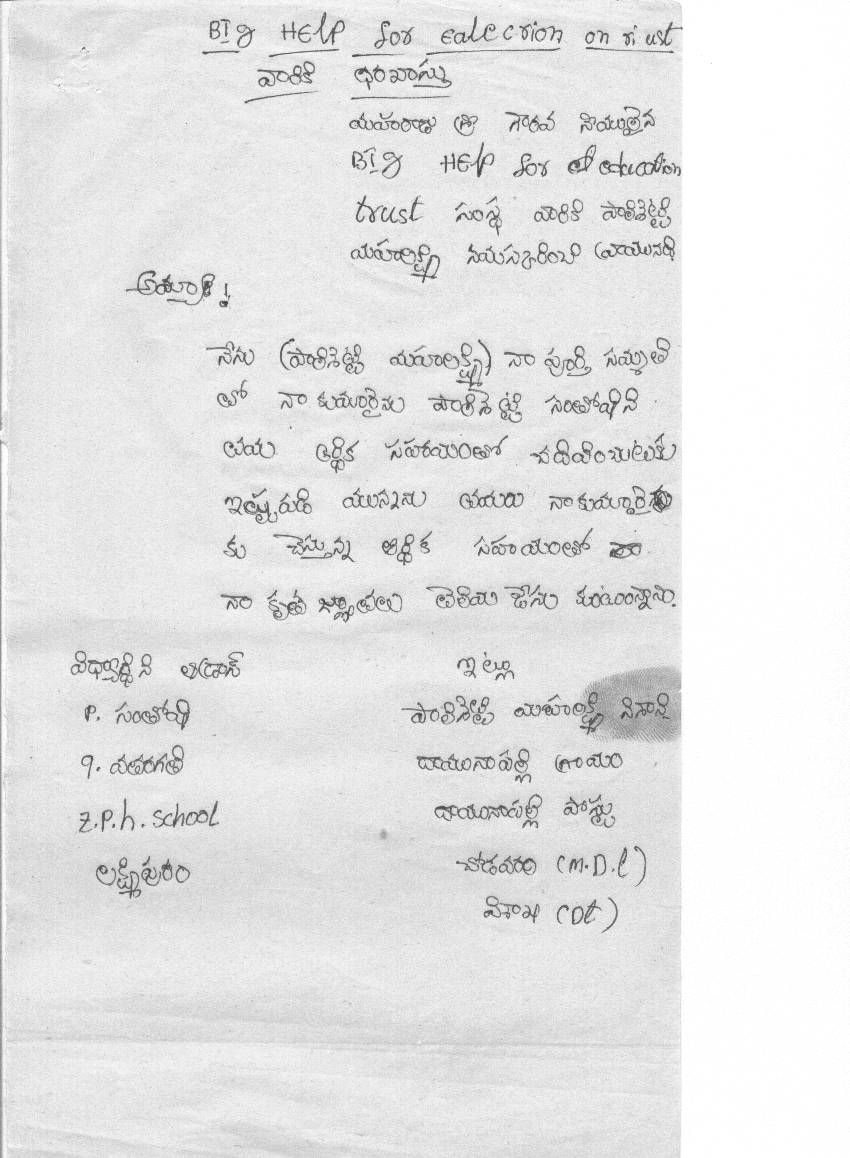 BIg HELP for ealection on ri ust
వారికి ధరఖాస్తు
మహారాజ శ్రీ గౌరవ నీయులైన
BIg HELP for education
trust సంస్థ వారికి పొలిశెట్టి
మహాలక్ష్మి నమస్కరించి వ్రాయునది
అమ్మా!
నేను (పొలిశెట్టి మహాలక్ష్మి) నా పూర్తి సమ్మతి
తో నా కుమార్తైను పొలిశెట్టి సంతోషిని
తమ ఆర్థిక సహాయంతో చదివించుటకు
ఇష్టపడి యున్నాను తమరు నా కుమార్తె
కు చేస్తున్న ఆర్థిక సహాయంతో
నా కృత జ్ఞతలు తెలియ జేసు కుంటున్నాను.
విద్యార్థిని అడ్రాస్
P. సంతోషి
9. వతరగతి
Z.P.h. school
లక్ష్మిపురం
ఇల్లు
పొలిశెట్టి మహాలక్ష్మి నిశాని
దామునాపల్లి గ్రామం
దామునాపల్లి పోస్టు
చోడవరం (M.D.l)
విశాఖ (Dt)